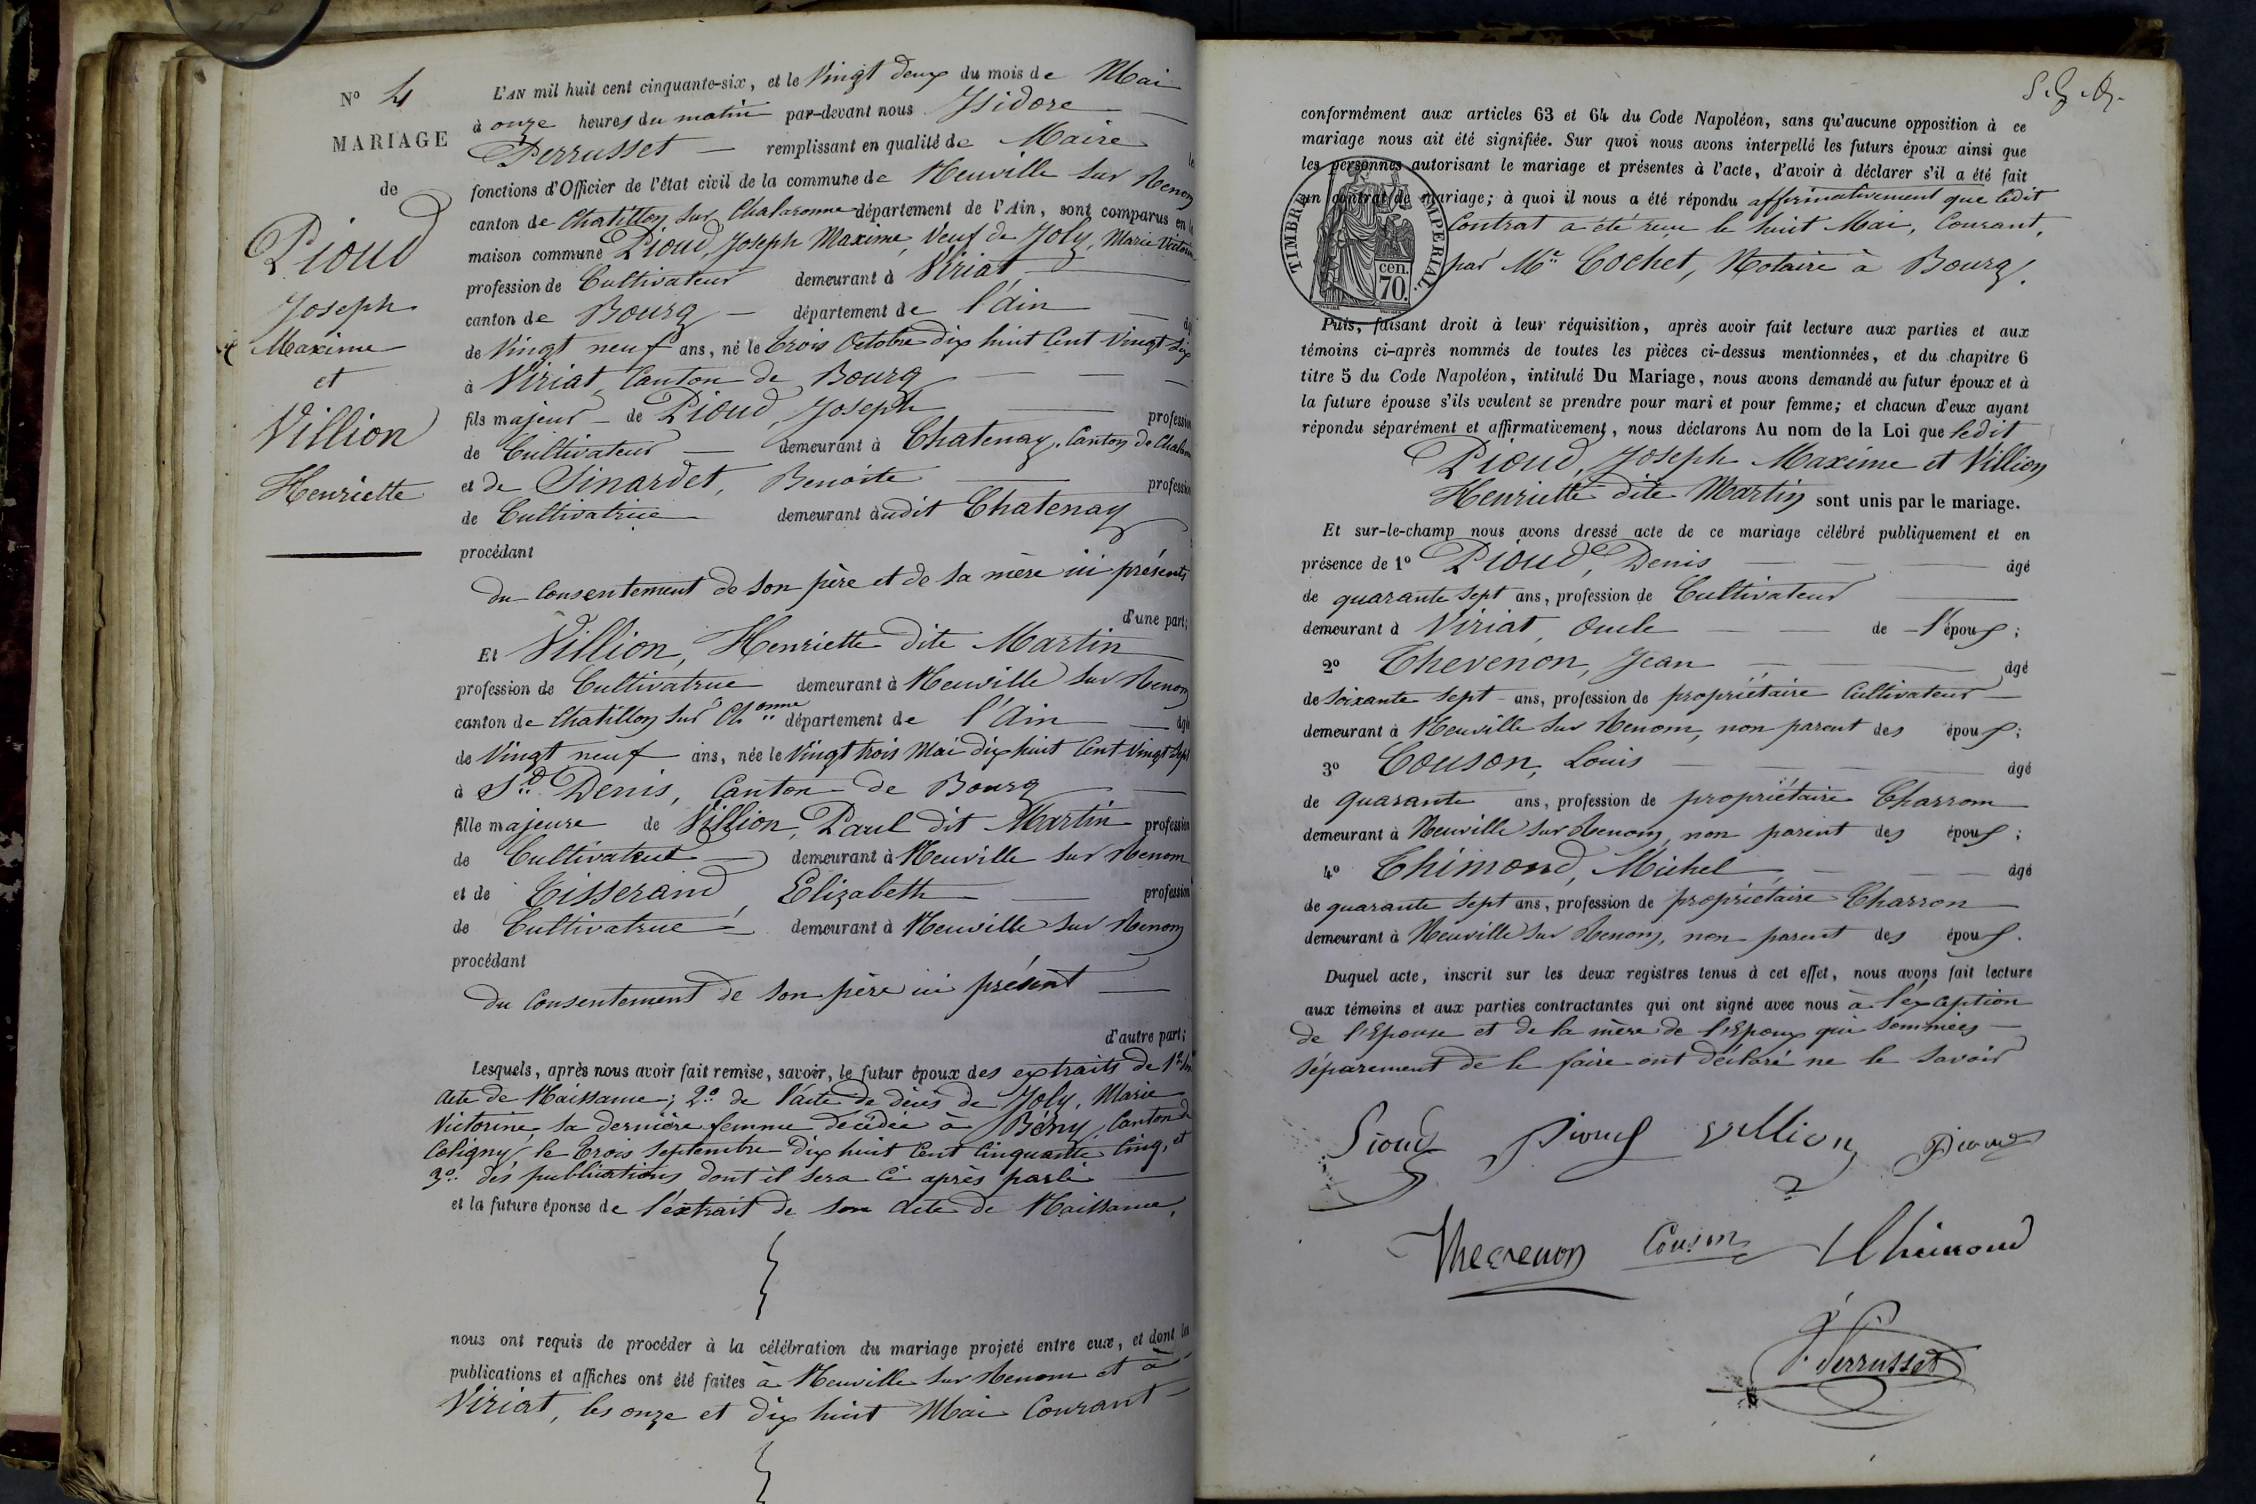 N° 4
MARIAGE
de
Pioud
Joseph
Maxime
et
Villion
Henriette
L'AN mil huit cent cinquante-six, et le Vingt deux du mois de Mai
à onze heures du matin par-devant nous Isidore
Perrusset — remplissant en qualité de Maire les
fonctions d'Officier de l'état civil de la commune de Neuville sur Renom
canton de Chatillon sur Chalaronne département de l'Ain, sont comparus en la
maison commune Pioud, Joseph Maxime, Veuf de Joly, Marie Victorine
profession de Cultivateur demeurant à Viriat
canton de Bourg — département de l'Ain — âgé
de Vingt neuf ans, né le trois Octobre dix huit Cent Vingt six
à Viriat, Canton de Bourg
fils majeur — de Pioud, Joseph profession
de Cultivateur — demeurant à Chatenay, Canton de
et de Sinardet, Benoite profession
de Cultivatrice demeurant audit Chatenay
procédant
du Consentement de son père et de sa mère ici présents
d'une part;
Et Villion, Henriette dite Martin
profession de Cultivatrice demeurant à Neuville sur Renom
canton de Chatillon sur Ch.onne département de l'Ain — âgée
de Vingt neuf ans, née le Vingt trois Mai dix huit Cent Vingt Sept
à St. Denis, Canton de Bourg
fille majeure de Villion, Paul dit Martin profession
de Cultivateur — demeurant à Neuville sur Renom
et de Tisserand, Elizabeth profession
de Cultivatrice — demeurant à Neuville sur Renom
procédant
du Consentement de son père ici présent
d'autre part;
Lesquels, après nous avoir fait remise, savoir, le futur époux des extraits de 1° son
Acte de Naissance; 2° de l'acte de décès de Joly, Marie
Victorine, sa dernière femme décédée à Bény, Canton de
Coligny, le trois Septembre dix huit Cent Cinquante Cinq, et
3° des publications dont il sera ci après parlé
et la future épouse de l'extrait de son Acte de Naissance,
nous ont requis de procéder à la célébration du mariage projeté entre eux, et dont les
publications et affiches ont été faites à Neuville sur Renom et à
Viriat, les onze et dix huit Mai Courant
conformément aux articles 63 et 64 du Code Napoléon, sans qu'aucune opposition à ce
mariage nous ait été signifiée. Sur quoi nous avons interpellé les futurs époux ainsi que
les personnes autorisant le mariage et présentes à l'acte, d'avoir à déclarer s'il a été fait
un contrat de mariage; à quoi il nous a été répondu affirmativement que ledit
Contrat a été reçu le huit Mai, Courant,
par Me Cochet, Notaire à Bourg.
TIMBRE IMPERIAL
70 cen.
Puis, faisant droit à leur réquisition, après avoir fait lecture aux parties et aux
témoins ci-après nommés de toutes les pièces ci-dessus mentionnées, et du chapitre 6
titre 5 du Code Napoléon, intitulé Du Mariage, nous avons demandé au futur époux et à
la future épouse s'ils veulent se prendre pour mari et pour femme; et chacun d'eux ayant
répondu séparément et affirmativement, nous déclarons Au nom de la Loi que ledit
Pioud, Joseph Maxime et Villion
Henriette dite Martin sont unis par le mariage.
Et sur-le-champ nous avons dressé acte de ce mariage célébré publiquement et en
présence de 1° Pioud, Denis âgé
de quarante sept ans, profession de Cultivateur
demeurant à Viriat, oncle de l'époux;
2° Thevenon, Jean âgé
de soixante sept ans, profession de propriétaire Cultivateur
demeurant à Neuville sur Renom, non parent des époux;
3° Couson, Louis âgé
de quarante ans, profession de propriétaire Charron
demeurant à Neuville sur Renom, non parent des époux;
4° Thimond, Michel âgé
de quarante sept ans, profession de propriétaire Charron
demeurant à Neuville sur Renom, non parent des époux.
Duquel acte, inscrit sur les deux registres tenus à cet effet, nous avons fait lecture
aux témoins et aux parties contractantes qui ont signé avec nous à l'exception
de l'Epouse et de la mère de l'Epoux qui sommées
séparement de le faire ont déclaré ne le savoir
Pioud Pioud Villion Pioud
Thevenon Couson Thimond
Perrusset